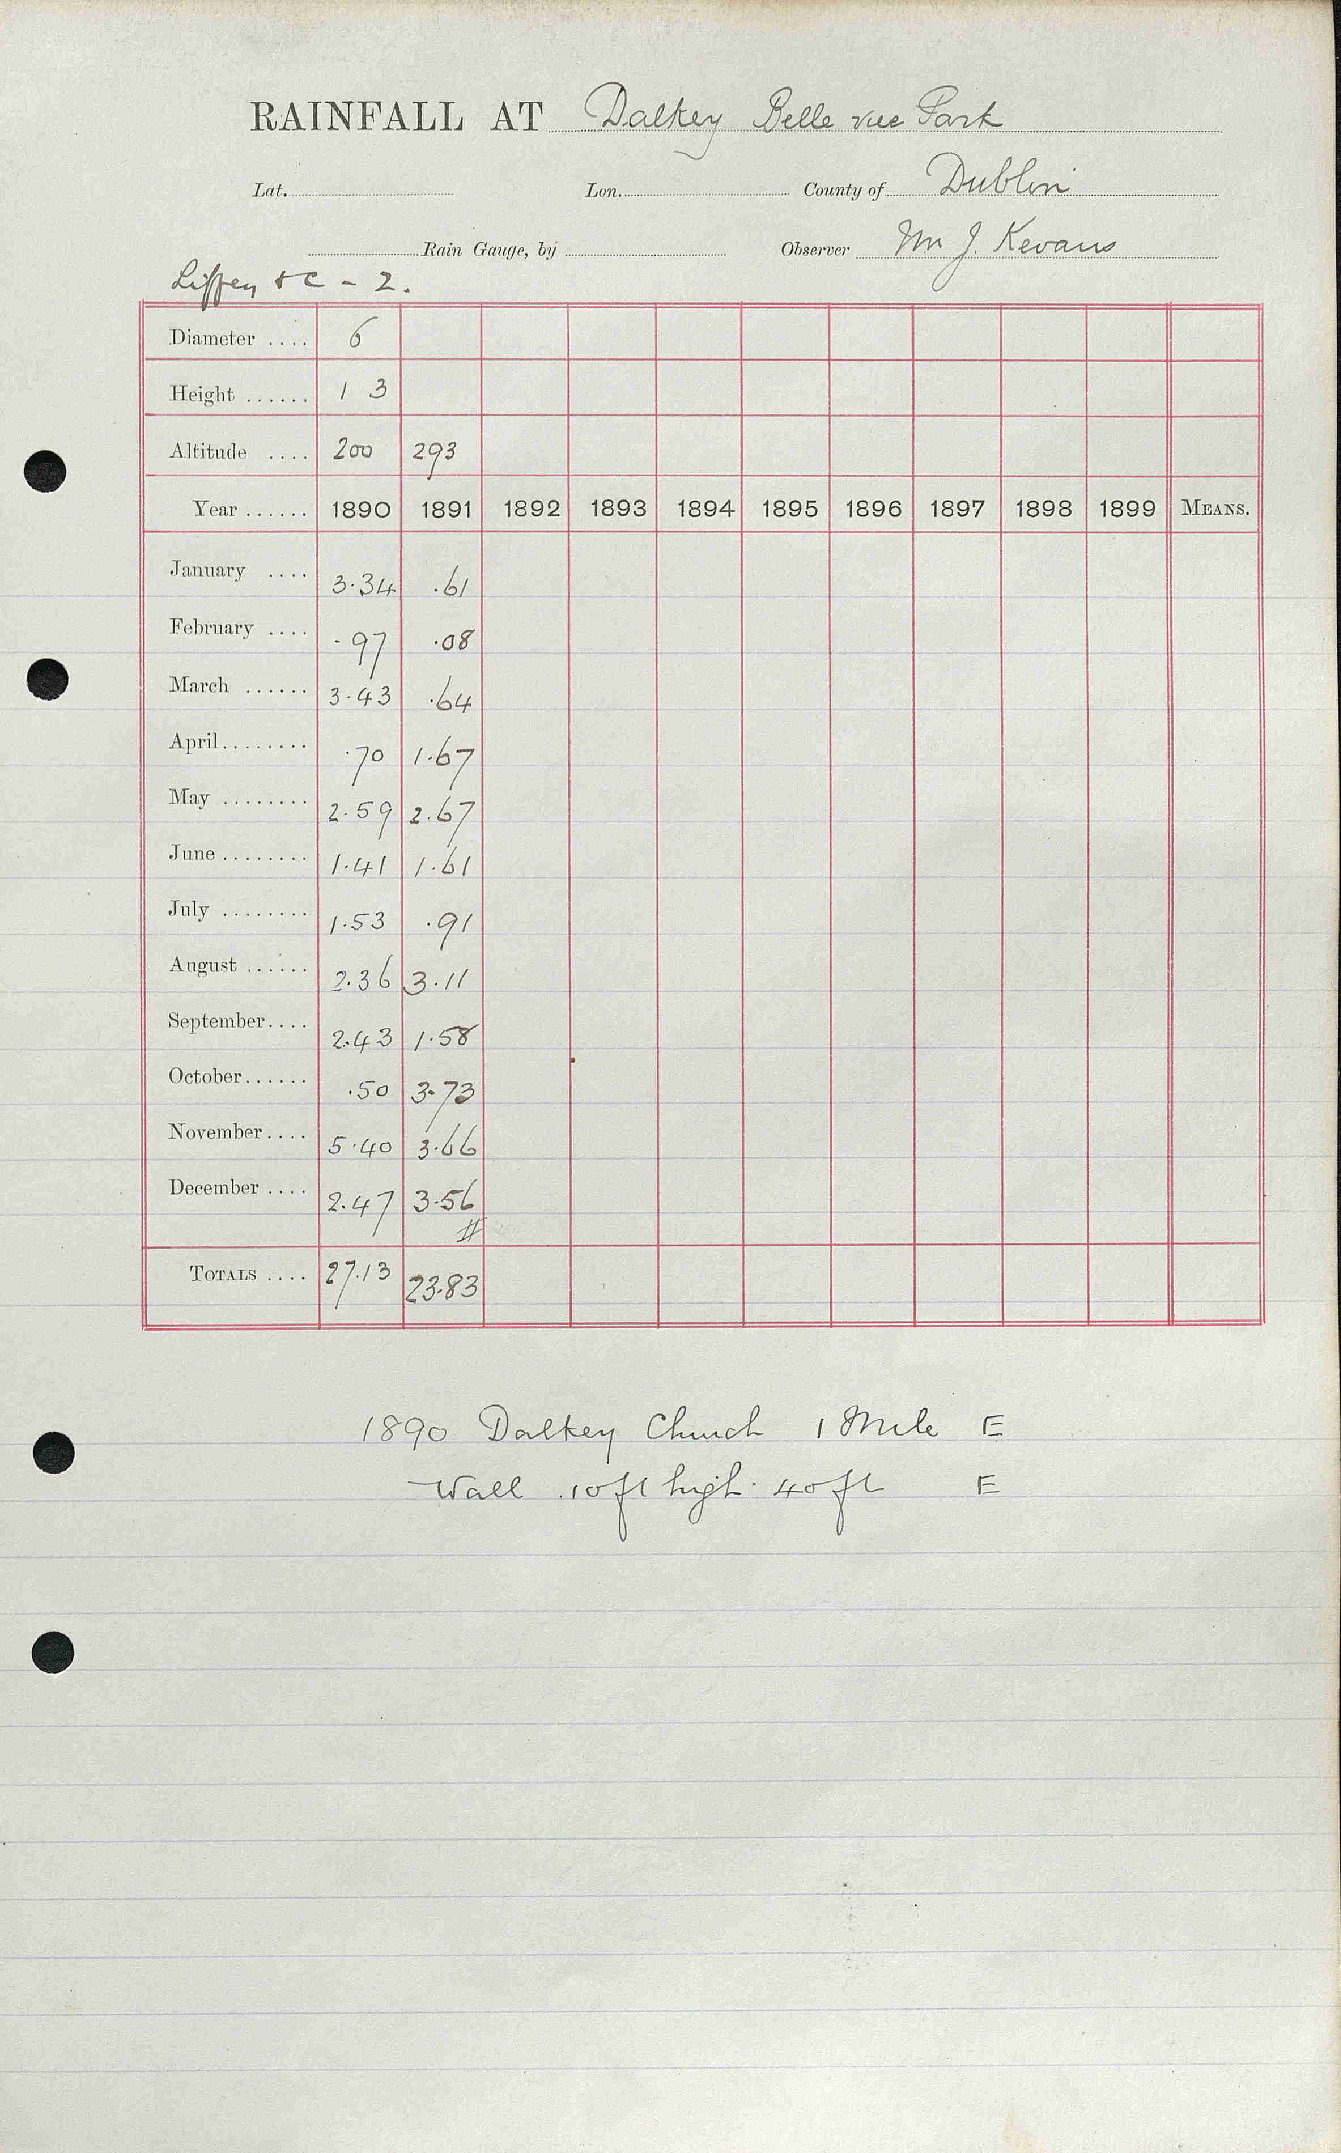 RAINFALL AT Dalkey Belle vue Park
Lat. Lon. County of Dublin
Rain Gauge, by Observer Mr J. Kevans
Liffey &c - 2.
Diameter .... 6
Height ...... 1 3
Altitude .... 200 293
Year ...... 1890 1891 1892 1893 1894 1895 1896 1897 1898 1899 MEANS.
January .... 3.34 .61
February .... .97 .08
March ...... 3.43 .64
April ........ .70 1.67
May ........ 2.59 2.67
June ........ 1.41 1.61
July ........ 1.53 .91
August ...... 2.36 3.11
September.... 2.43 1.58
October...... .50 3.73
November.... 5.40 3.66
December .... 2.47 3.56
#
TOTALS .... 27.13 23.83
1890 Dalkey Church 1 Mile E
Wall 10 ft high. 40 ft E